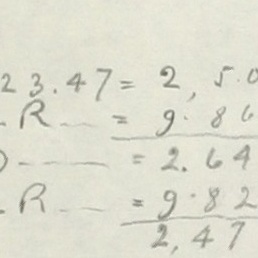 23.47 = 2,5.0
R = 9.86
= 2.64
R = 9.82
2,47